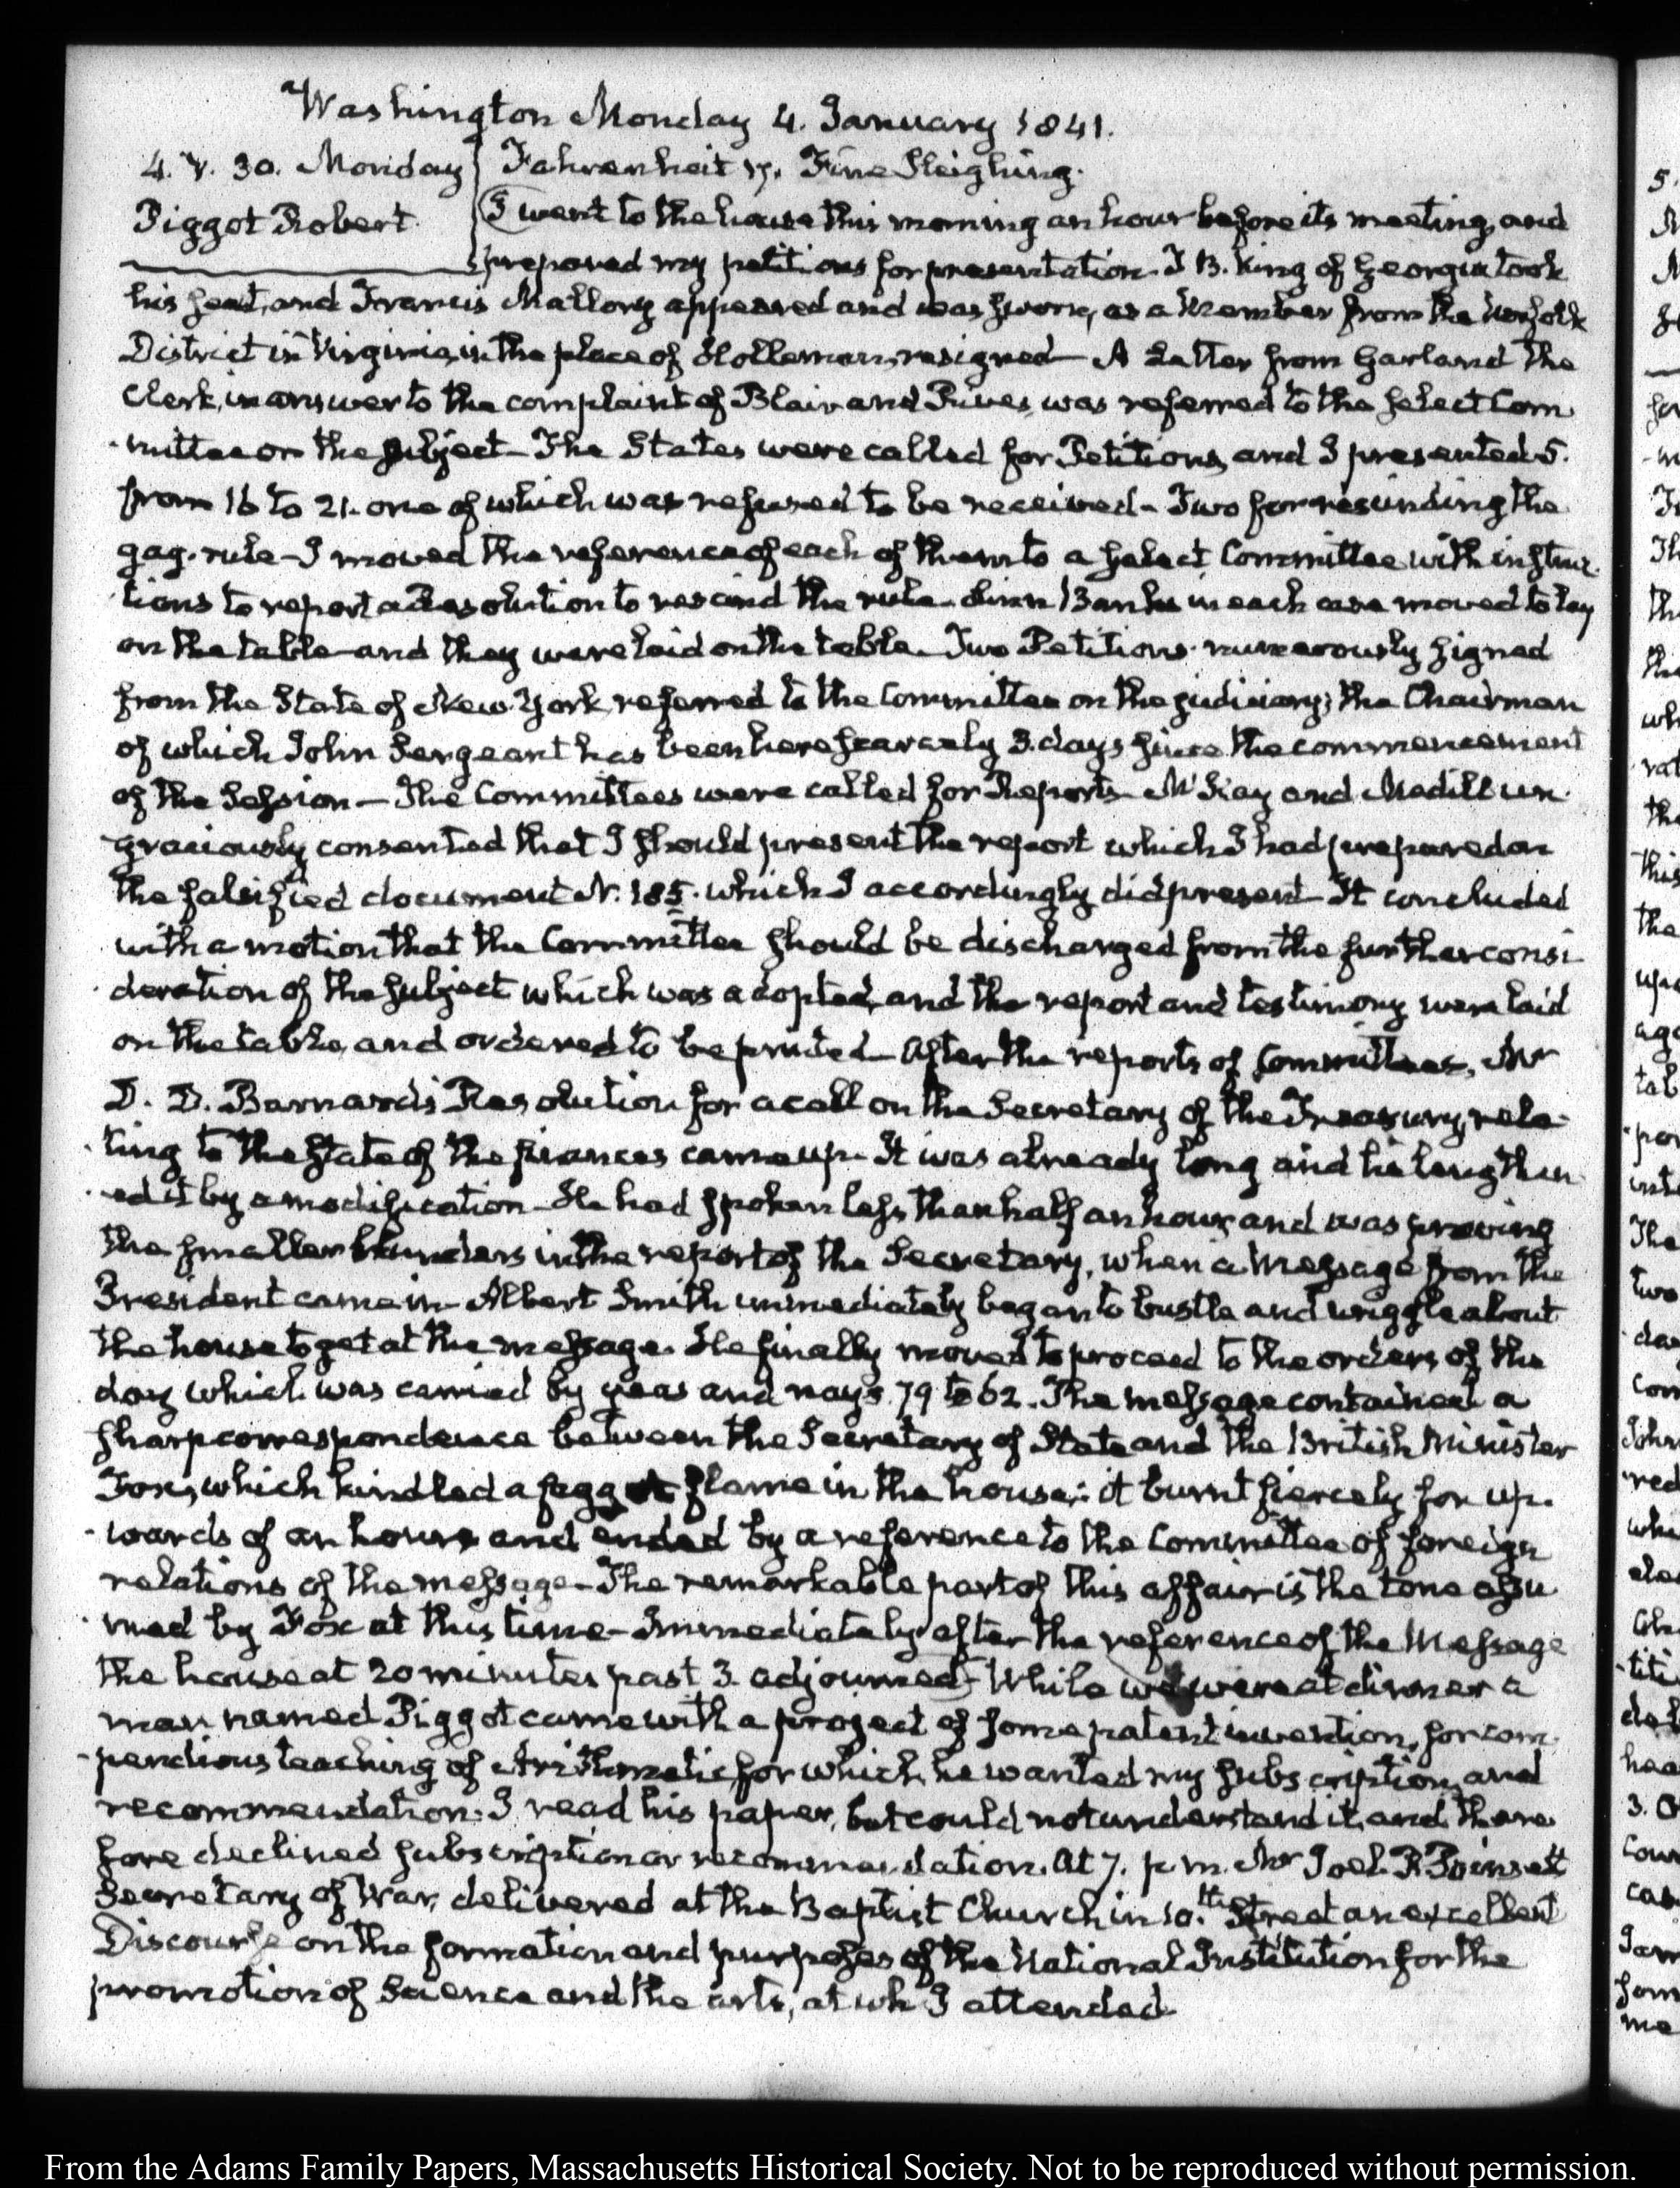 Washington Monday 4. January 1841.
4. V. 30. Monday
Piggot Robert.
Fahrenheit 17. Fine Sleighing.
I went to the house this morning an hour before its meeting, and
prepared my petitions for presentation. T B. King of Georgia took
his seat, and Francis Mallory appeared and was sworn, as a Member from the Norfolk
District in Virginia, in the place of Holleman, resigned — A Letter from Garland the
Clerk, in answer to the complaint of Blair and Rives, was referred to the select Com
-mittee on the subject — The States were called for Petitions, and I presented 5.
from 16 to 21. one of which was refused to be received — Two for rescinding the
gag-rule — I moved the reference of each of them to a select Committee with instruc
tions to report a Resolution to rescind the rule — Linn Banks in each case moved to lay
on the table and they were laid on the table. Two Petitions numerously signed
from the State of New-York, referred to the Committee on the judiciary; the Chairman
of which John Sergeant has been here scarcely 3. days since the commencement
of the Session — The Committees were called for Reports — McKay and Medill un
graciously consented that I should present the report which I had prepared on
the falsified document N. 185. which I accordingly did present — It concluded
with a motion that the Committee should be discharged from the further consi
-deration of the subject which was adopted, and the report and testimony were laid
on the table, and ordered to be printed — After the reports of Committees, Mr
D. D. Barnard's Resolution for a call on the Secretary of the Treasury, rela-
-ting to the state of the finances came up. It was already long and he length en
-ed it by a modification — He had spoken less than half an hour, and was proving
the smaller blunders in the report of the Secretary, when a Message from the
President came in — Albert Smith immediately began to bustle and wriggle about
the house to get at the message. He finally moved to proceed to the orders of the
day which was carried by yeas and nays 79 to 62. The message contained a
sharp correspondence between the Secretary of State and the British Minister
Fox, which kindled a faggot flame in the house: it burnt fiercely for up-
-wards of an hour and ended by a reference to the Committee of foreign
relations of the message — The remarkable part of this affair is the tone assu
-med by Fox at this time — Immediately after the reference of the Message
the house at 20 minutes past 3. adjourned — While we were at dinner a
man named Piggot came with a project of some patent invention, for com
-pendious teaching of Arithmetic, for which he wanted my subscription, and
recommendation. I read his paper, but could not understand it, and there
fore declined subscription or recommendation. At 7. p.m. Mr Joel R. Poinsett
Secretary of War, delivered at the Baptist Church in 10.th Street an excellent
Discourse on the formation and purposes of the National Institution for the
promotion of Science and the arts, at wh. I attended
From the Adams Family Papers, Massachusetts Historical Society. Not to be reproduced without permission.